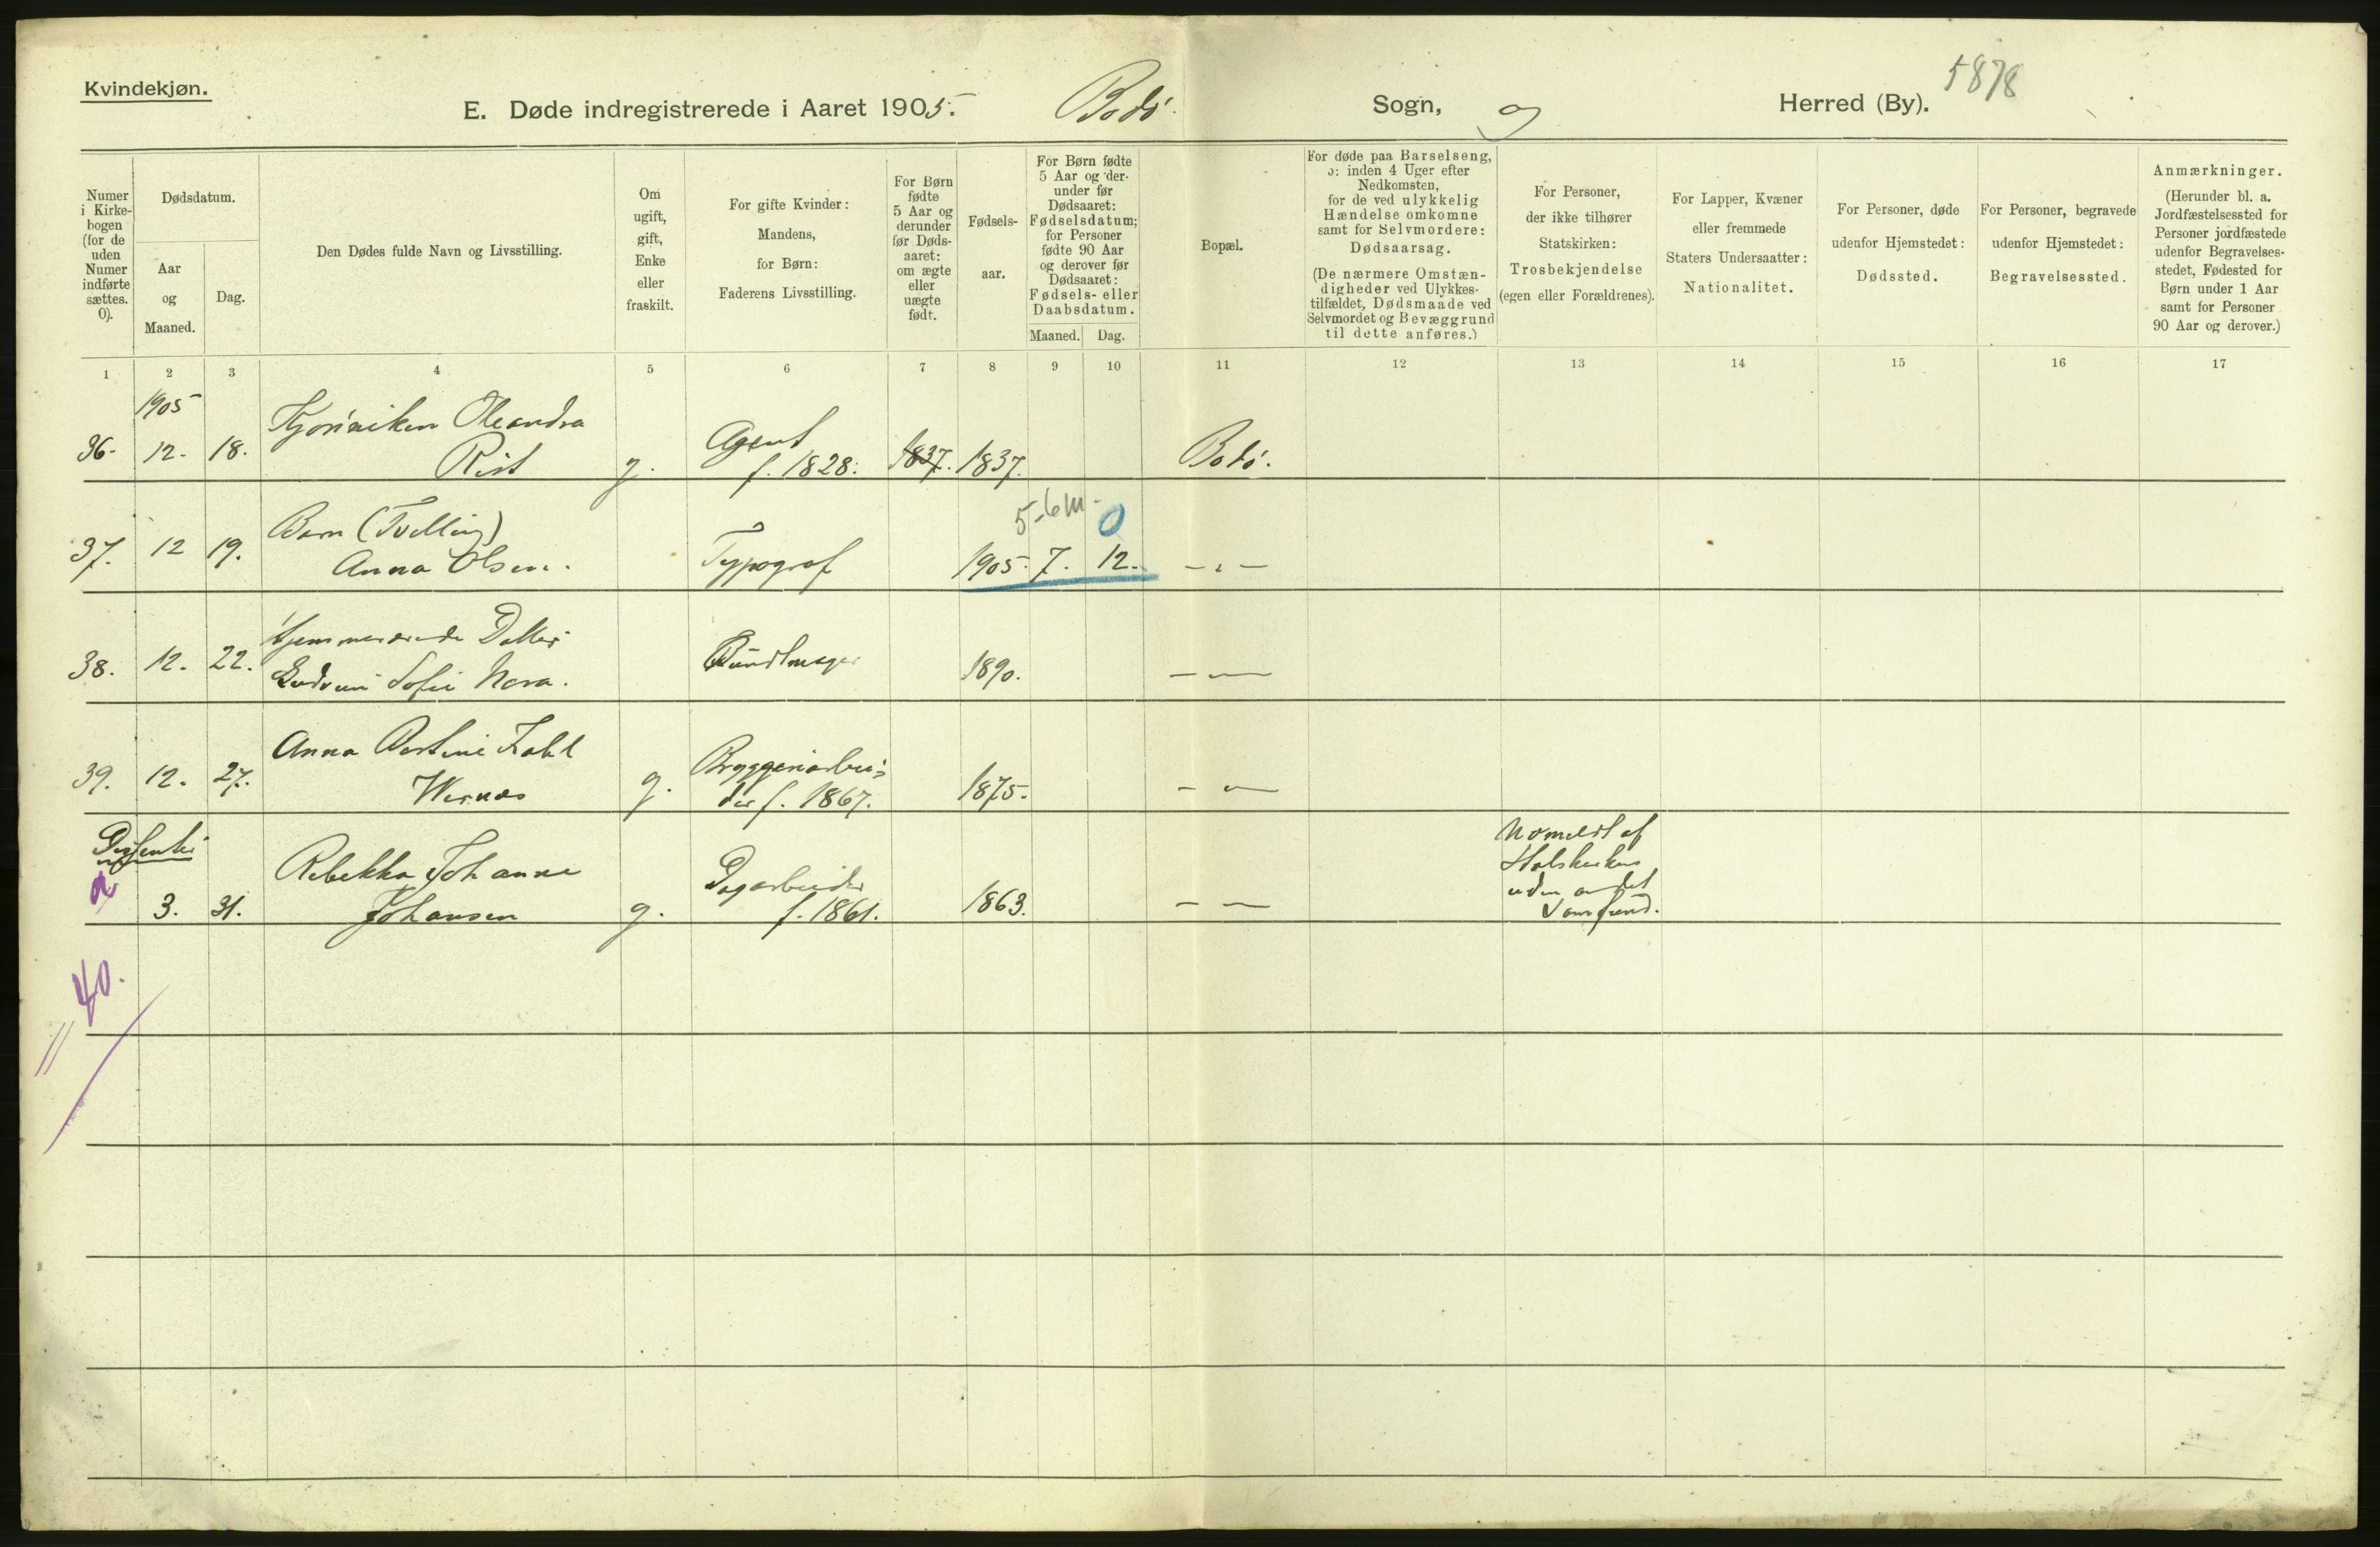 Kvindekjøn.
5878
E. Døde indregistrerede i Aaret 1905. Bodø Sogn, og Herred (By).
Numer i Kirkebogen (for de uden Numer indførte sættes. 0).
Dødsdatum.
Aar og Maaned.
Dag.
Den Dødes fulde Navn og Livsstilling.
Om ugift, gift, Enke eller fraskilt.
For gifte Kvinder: Mandens, for Børn: Faderens Livsstilling.
For Børn fødte 5 Aar og derunder før Dødsaaret: om ægte eller uægte født.
Fødselsaar.
For Børn fødte 5 Aar og derunder før Dødsaaret: Fødselsdatum; for Personer fødte 90 Aar og derover før Dødsaaret: Fødsels- eller Daabsdatum.
Maaned. Dag.
Bopæl.
For døde paa Barselseng, ɔ: inden 4 Uger efter Nedkomsten, for de ved ulykkelig Hændelse omkomne samt for Selvmordere: Dødsaarsag.
(De nærmere Omstændigheder ved Ulykkestilfældet, Dødsmaade ved Selvmordet og Bevæggrund til dette anføres.)
For Personer, der ikke tilhører Statskirken: Trosbekjendelse (egen eller Forældrenes).
For Lapper, Kvæner eller fremmede Staters Undersaatter: Nationalitet.
For Personer, døde udenfor Hjemstedet: Dødssted.
For Personer, begravede udenfor Hjemstedet: Begravelsessted.
Anmærkninger.
(Herunder bl. a. Jordfæstelsessted for Personer jordfæstede udenfor Begravelsesstedet, Fødested for Børn under 1 Aar samt for Personer 90 Aar og derover.)
1 2 3 4 5 6 7 8 9 10 11 12 13 14 15 16 17
1905
Oleandra Agent
36. 12. 18. Rist g. f. 1828. 1837. 1837. Bodø.
5-6 m 0
Barn (Tvilling)
37. 12 19. Anna Olsen. Typograf 1905. 7. 12. - " -
Hjemmeværende Datter
38. 12. 22. Gudrun Sofie Nora. Bundtmager 1890. - " -
Anna Bryggeriarbei-
39. 12. 27. Wernes g. der f. 1867. 1875. - " -
Dissenter Udmeldt af
Rebekka Johanne Dagarbeider Statskirken
uden andet
3. 31. Johansen g. f. 1861. 1863. - -
Samfund.
= 40.